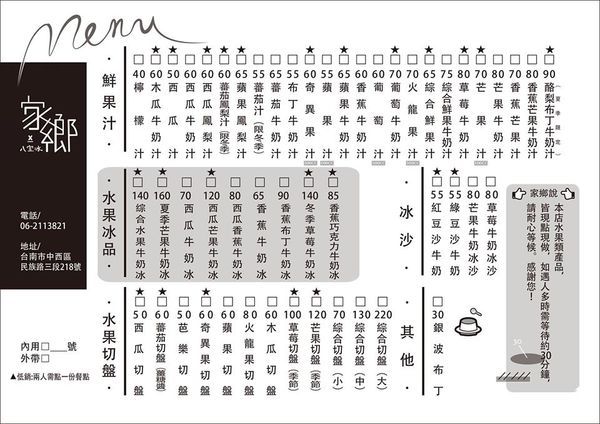 Menu
家鄉
×
八寶冰
電話/
06-2113821
地址/
台南市中西區
民族路三段218號
內用□___號
外帶□
▲低銷:兩人需點一份餐點
·鮮果汁·
□40 檸檬汁
★□60 木瓜牛奶汁
★□50 西瓜汁
□60 西瓜牛奶汁
□60 西瓜鳳梨汁
★□60 蕃茄鳳梨汁(限冬季)
★□65 蘋果鳳梨汁
□55 蕃茄汁(限冬季)
□60 蕃茄牛奶汁
□55 布丁牛奶汁
★□60 奇異果汁
□55 蘋果汁
★□65 蘋果牛奶汁
□60 葡萄汁
□70 葡萄牛奶汁
★□70 火龍果汁
□65 綜合果汁
□75 綜合鮮果牛奶汁
★□80 草莓牛奶汁
★□70 芒果汁
□80 芒果牛奶汁
□70 香蕉芒果汁
□80 香蕉芒果牛奶汁
★□90 酪梨布丁牛奶汁(夏季限定)
·水果冰品·
★□140 綜合水果牛奶冰
★□160 夏季芒果牛奶冰
□70 西瓜牛奶冰
★□120 西瓜芒果牛奶冰
□80 西瓜香蕉牛奶冰
□65 香蕉牛奶冰
□90 香蕉布丁牛奶冰
★□140 冬季草莓牛奶冰
★□85 香蕉巧克力牛奶冰
·冰沙·
★□55 紅豆沙牛奶
★□55 綠豆沙牛奶
□80 芒果牛奶冰沙
□80 草莓牛奶冰沙
家鄉說
本店水果類產品,
皆現點現做,如遇人多時需等待約30分鐘,
請耐心等候。感謝您!
30
·水果切盤·
★□50 西瓜切盤
★□60 蕃茄切盤(薑糖醬)
□50 芭樂切盤
★□60 奇異果切盤
□60 蘋果切盤
□80 火龍果切盤
□60 木瓜切盤
★□100 草莓切盤(季節)
★□120 芒果切盤(季節)
□70 綜合切盤(小)
□130 綜合切盤(中)
□220 綜合切盤(大)
·其他·
□30 銀波布丁